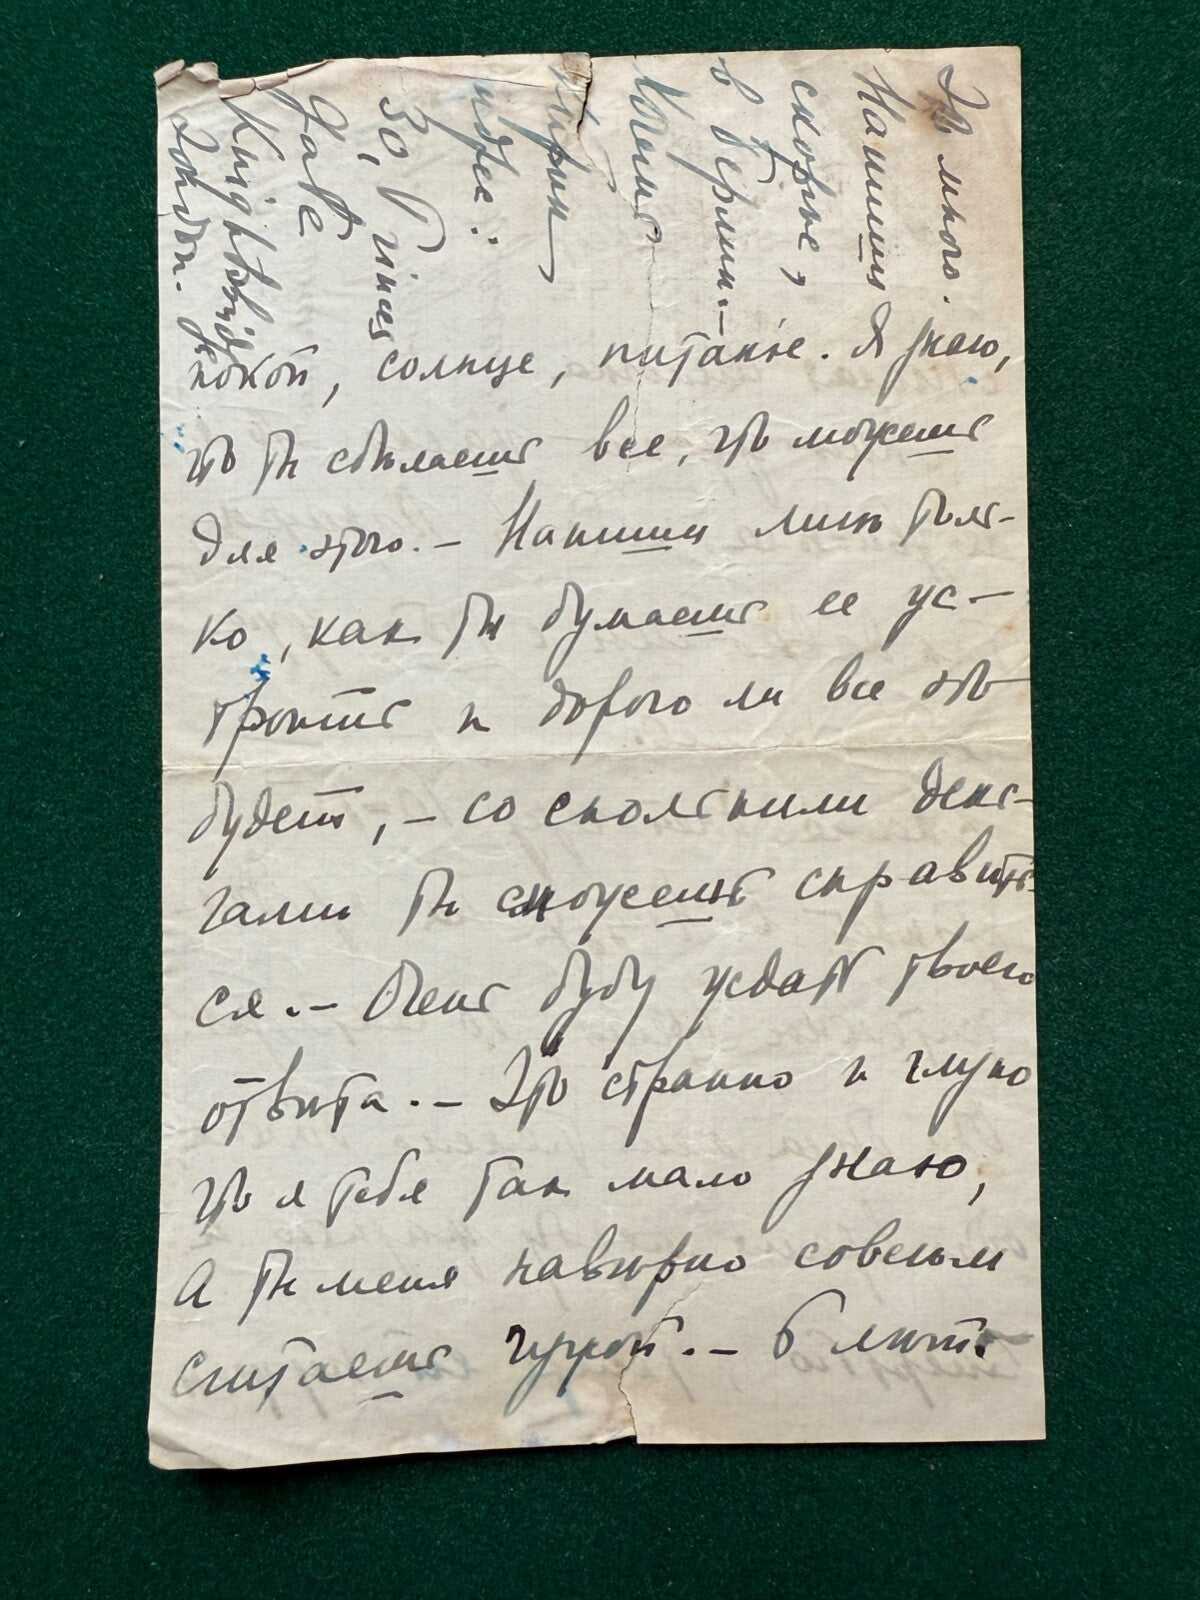 покой, солнце, питанье. Я знаю,
что ты сдѣлаешь все, что можешь
для этого. — Напиши лишь толь-
ко, как ты думаешь ее ус-
троить и дорого ли все это
будет, — со сколькими день-
гами ты сможешь справить-
ся. — Очень буду ждать твоего
отвѣта. — Это странно и глупо
что я тебя так мало знаю,
а ты меня навѣрно совсѣм
считаешь чужой. — 6 лѣтъ
это много.
Напиши
скорѣе,
в Берлин. —
Кирии
адрес:
30, Princes
Gate
Knightsbridge
London.